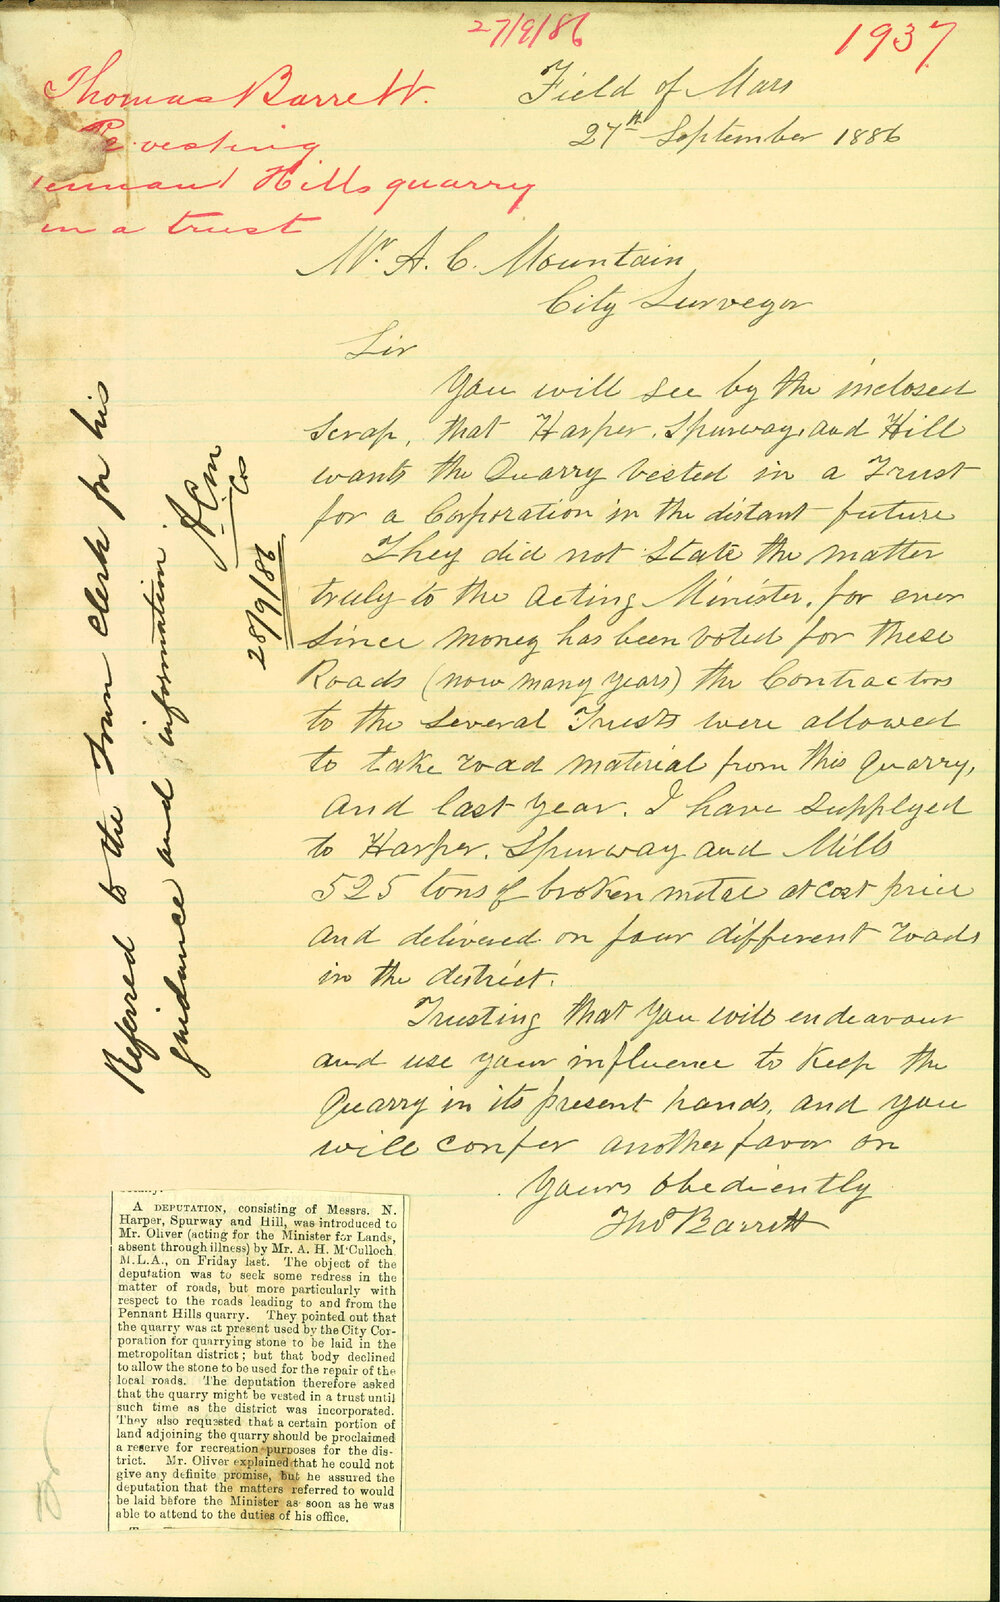 27/9/86
1937
Thomas Barrett.
Re vesting
Pennant Hills quarry
in a trust
Field of Mars
27th September 1886
Mr. A. C. Mountain
City Surveyor
Sir
You will see by the inclosed
scrap, that Harper, Spurway, and Hill
wants the Quarry vested in a Trust
for a Corporation in the distant future
They did not state the matter
truly to the Acting Minister, for ever
since money has been voted for these
Roads (now many years) the Contractors
to the several Trusts were allowed
to take road material from this Quarry,
and last year. I have supplyed
to Harper, Spurway and Mills
525 tons of broken metal at cost price
and delivered on four different roads
in the district.
Trusting that you will endeavour
and use your influence to keep the
Quarry in its present hands, and you
will confer another favor on
Yours obediently
Thos Barrett
Referred to the Town Clerk for his
guidance and information.
A.C.M
CS
28/9/86
A DEPUTATION, consisting of Messrs. N.
Harper, Spurway and Hill, was introduced to
Mr. Oliver (acting for the Minister for Lands,
absent through illness) by Mr. A. H. M'Culloch
M.L.A., on Friday last. The object of the
deputation was to seek some redress in the
matter of roads, but more particularly with
respect to the roads leading to and from the
Pennant Hills quarry. They pointed out that
the quarry was at present used by the City Cor-
poration for quarrying stone to be laid in the
metropolitan district; but that body declined
to allow the stone to be used for the repair of the
local roads. The deputation therefore asked
that the quarry might be vested in a trust until
such time as the district was incorporated.
They also requested that a certain portion of
land adjoining the quarry should be proclaimed
a reserve for recreation purposes for the dis-
trict. Mr. Oliver explained that he could not
give any definite promise, but he assured the
deputation that the matters referred to would
be laid before the Minister as soon as he was
able to attend to the duties of his office.